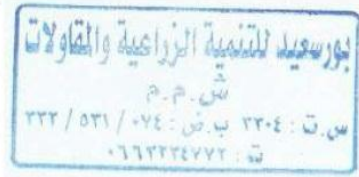 بورسعيد للتنمية الزراعية والمقاولات
ش.م.م
س.ت : ٢٣٠٤ ب.ض : ٠٧٤ / ٥٣١ / ٣٣٢
ت : ٠٦٦٣٢٣٤٧٧٢